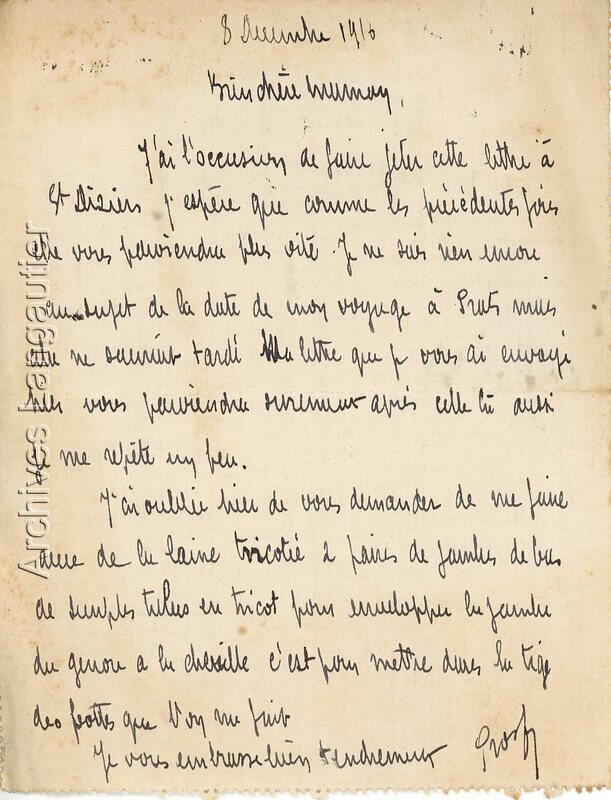 8 Decembre 1916
Bien chère maman,
J'ai l'occasion de faire jeter cette lettre à
St Diziers j'espère que comme les précédentes fois
elle vous parviendra plus vite. Je ne sais rien encore
au sujet de la date de mon voyage à Prats mais
elle ne saurait tardé Ma lettre que je vous ai envoyé
hier vous parviendra surement après celle là aussi
je me repète un peu.
J'ai oublié hier de vous demander de me faire
avec de la laine tricotié 2 paires de jambes de bas
de simples tubes en tricot pour envelopper la jambe
du genou a la cheville c'est pour mettre dans la tige
des bottes que l'on me fait
Je vous embrasse bien tendrement
Archives Langautier